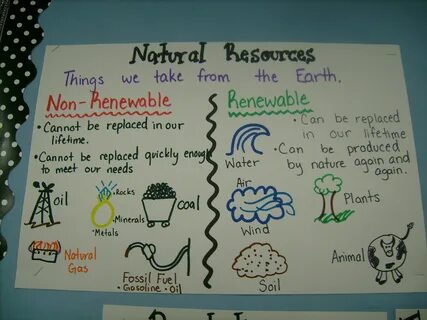 Natural Resources
Things we take from the Earth.
Non-Renewable
• Cannot be replaced in our
lifetime.
• Cannot be replaced quickly enough
to meet our needs
Oil
• Rocks
• Minerals
• Metals
Coal
Natural
Gas
Fossil Fuel
• Gasoline • Oil
Renewable
• Can be replaced
in our lifetime
• Can be produced
by nature again and
again.
Water
Air
Wind
Plants
Soil
Animal